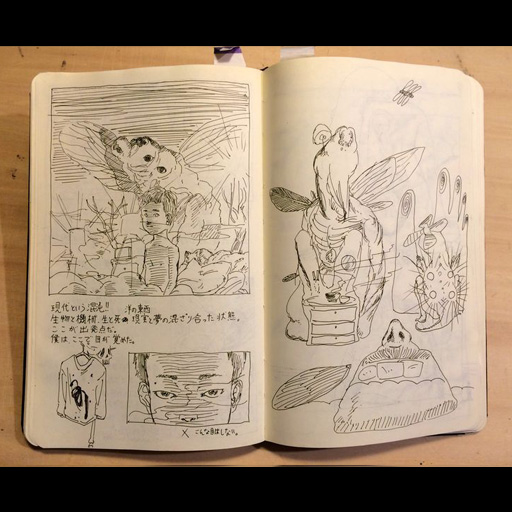 現代という混沌!!
洋の東西
生物と機械、生と死 現実と夢の混ざり合った状態。
ここが出発点だ。
僕はここで目が覚めた。
× こんな顔はしない。